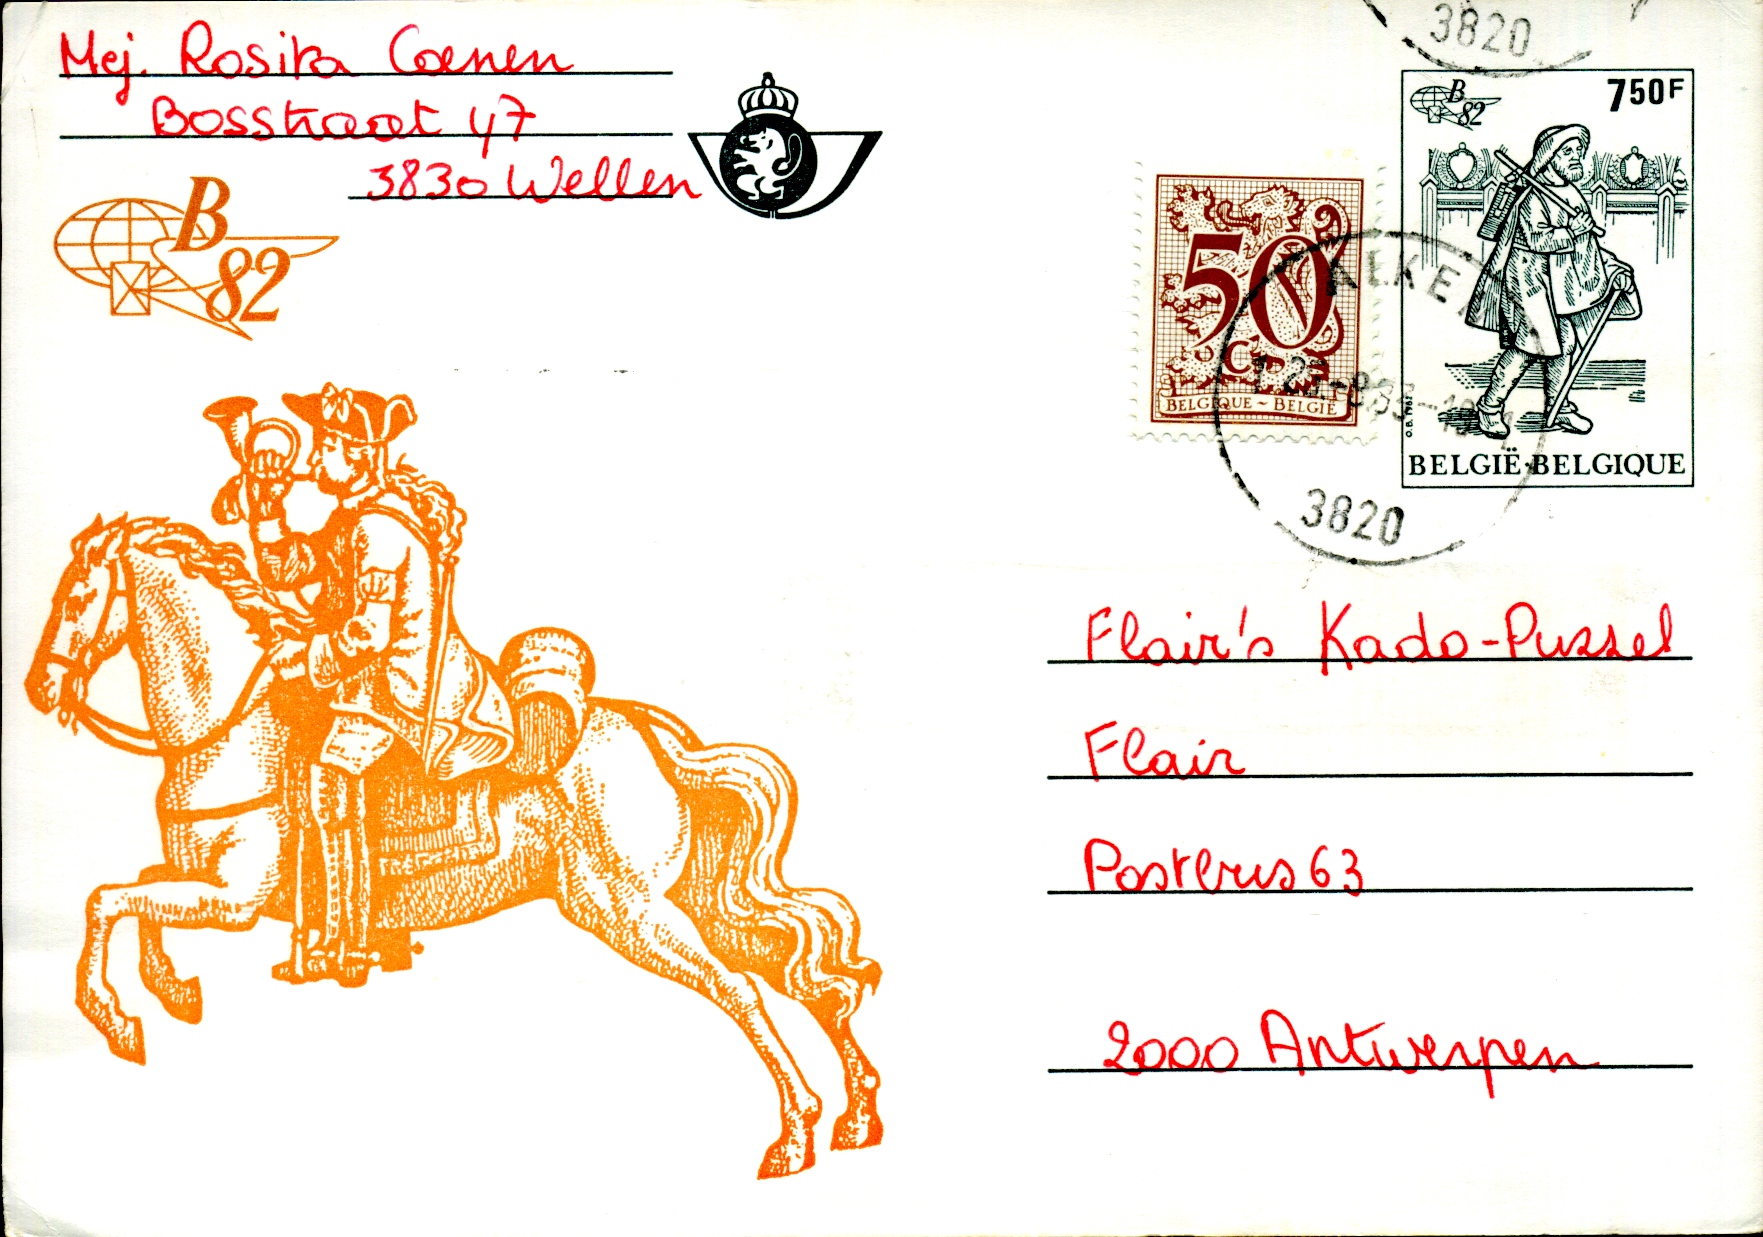 Mej. Rosita Coenen
Bosstraat 47
3830 Wellen
B
82
3820
B
82
750F
50
C
BELGIQUE ~ BELGIË
O.B. 1982
BELGIË·BELGIQUE
ALKEN
3820
Flair's Kado-Puzzel
Flair
Postbus 63
2000 Antwerpen